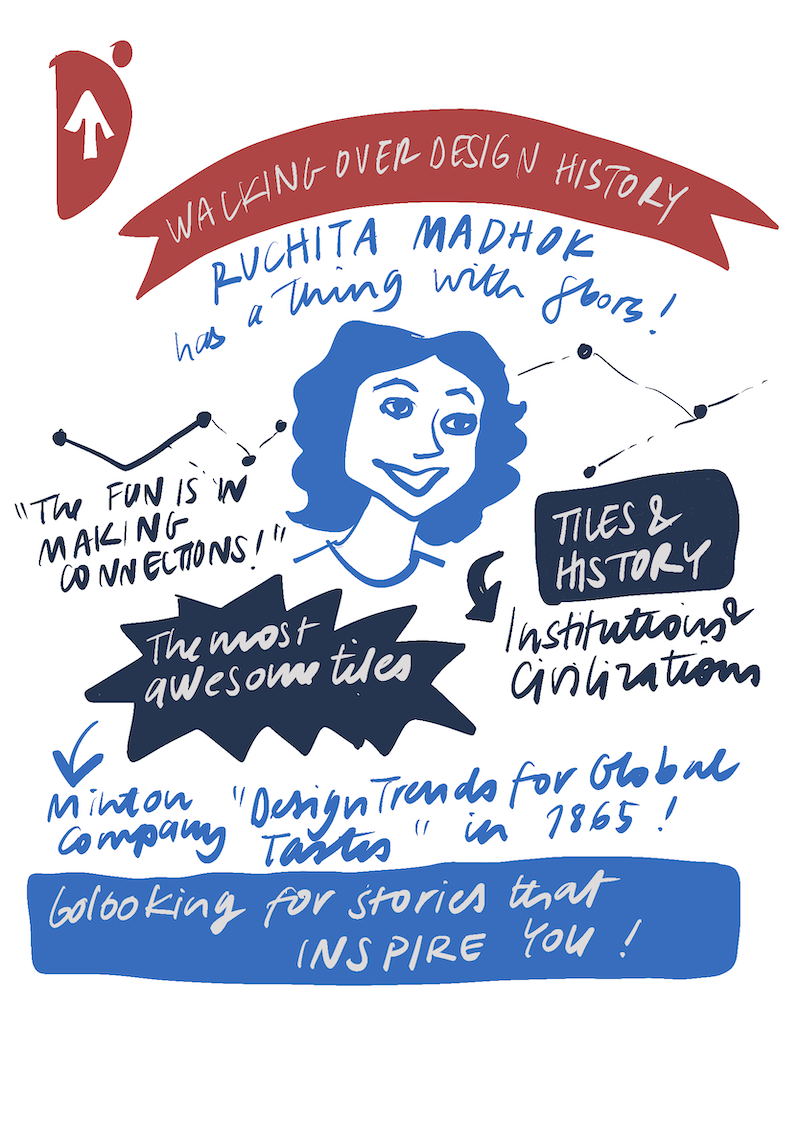 WALKING OVER DESIGN HISTORY
RUCHITA MADHOK
has a Thing with floors!
"The FUN IS IN
MAKING
CONNECTIONS!"
TILES &
HISTORY
Institutions &
Civilizations
The most
awesome tiles
Minton "Design Trends for Global
Company Tastes" in 1865!
Go looking for stories that
INSPIRE YOU!